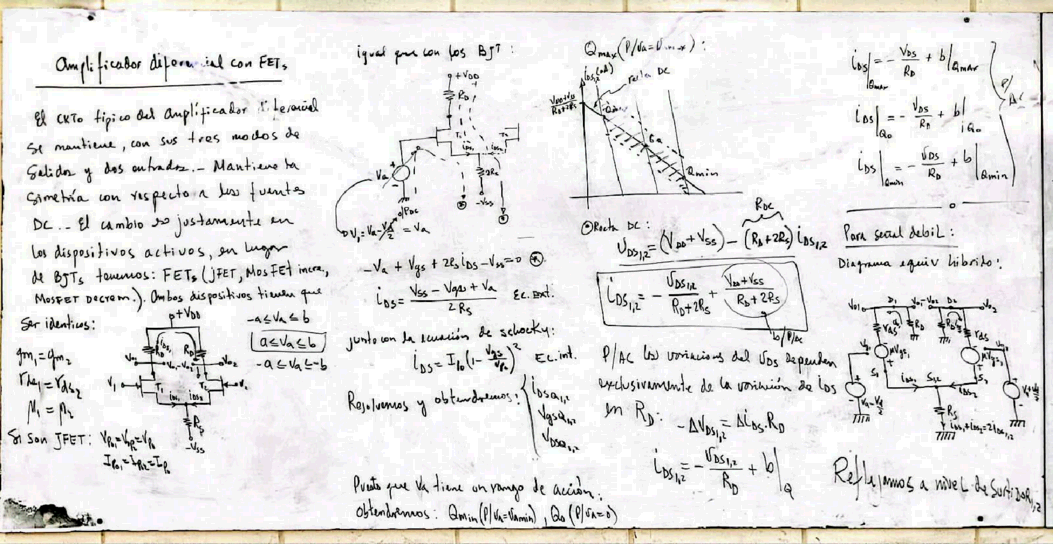 Amplificador diferencial con FETs
El CKTO típico del amplificador diferencial
se mantiene, con sus tres modos de
Salidas y dos entradas.- Mantiene la
Simetría con respecto a las fuentes
DC.- El cambio es justamente en
los dispositivos activos, en lugar
de BJTs tenemos: FETs (JFET, MosFET increm,
MOSFET Decrem.). Ambos dispositivos tienen que
Ser identicos:
gm1 = gm2
rds1 = rds2
μ1 = μ2
Si son JFET: Vp1 = Vp2 = Vpo
Ipo1 = Ipo2 = Ipo
+VDD
RD
RD
iDS1
V1
T1
T2
iDS1
iDS2
RS
-VSS
-a ≤ Va ≤ b
a ≤ Va ≤ b
-a ≤ Va ≤ -b
igual que con los BJT:
+VDD
RD
T1
Va
2RS
-VSS
P/DC
V1 = Va - Vd/2 = Va
-Va + Vgs + 2RS iDS - VSS = 0 ⊛
iDS = (VSS - VgS + Va) / 2RS Ec. Ext.
junto con la ecuación de schocky:
iDS = Ipo (1 - Vgs/Vpo)² Ec. int.
Resolvemos y obtendremos:
iDSQ1,2
VgSQ1,2
VDSQ1,2
Puesto que Va tiene un rango de acción,
obtendremos: Qmin (P/Va=Vamin), Qo (P/Va=0)
Qmax (P/Va=Vamax):
recta DC
VDD+VSS / RD+2RS
Qmax
Qo
Qmin
Recta DC:
RDC
VDS1,2 = (VDD + VSS) - (RD + 2RS) iDS1,2
iDS1,2 = - VDS1,2 / (RD+2RS) + (VDD+VSS) / (RD+2RS)
b/P/DC
P/AC las variaciones del VDS dependen
exclusivamente de la variación de iDS
en RD:
-ΔVDS1,2 = ΔiDS.RD
iDS1,2 = - VDS1,2 / RD + b|Q
iDS|Qmax = - VDS / RD + b|Qmax
iDS|Qo = - VDS / RD + b|Qo
iDS|Qmin = - VDS / RD + b|Qmin
P/AC
Para señal debil:
Diagrama equiv híbrido:
Vo1
D1
Vo1-Vo2
D2
Vo2
rds
RD
RD
rds
μVgs1
μVgs2
S1
S1,2
S2
iDS1
iDS2
RS
iDS1+iDS2=2iDS1,2
Va - Vd/2
Va + Vd/2
Reflejamos a nivel de Surtidor1,2